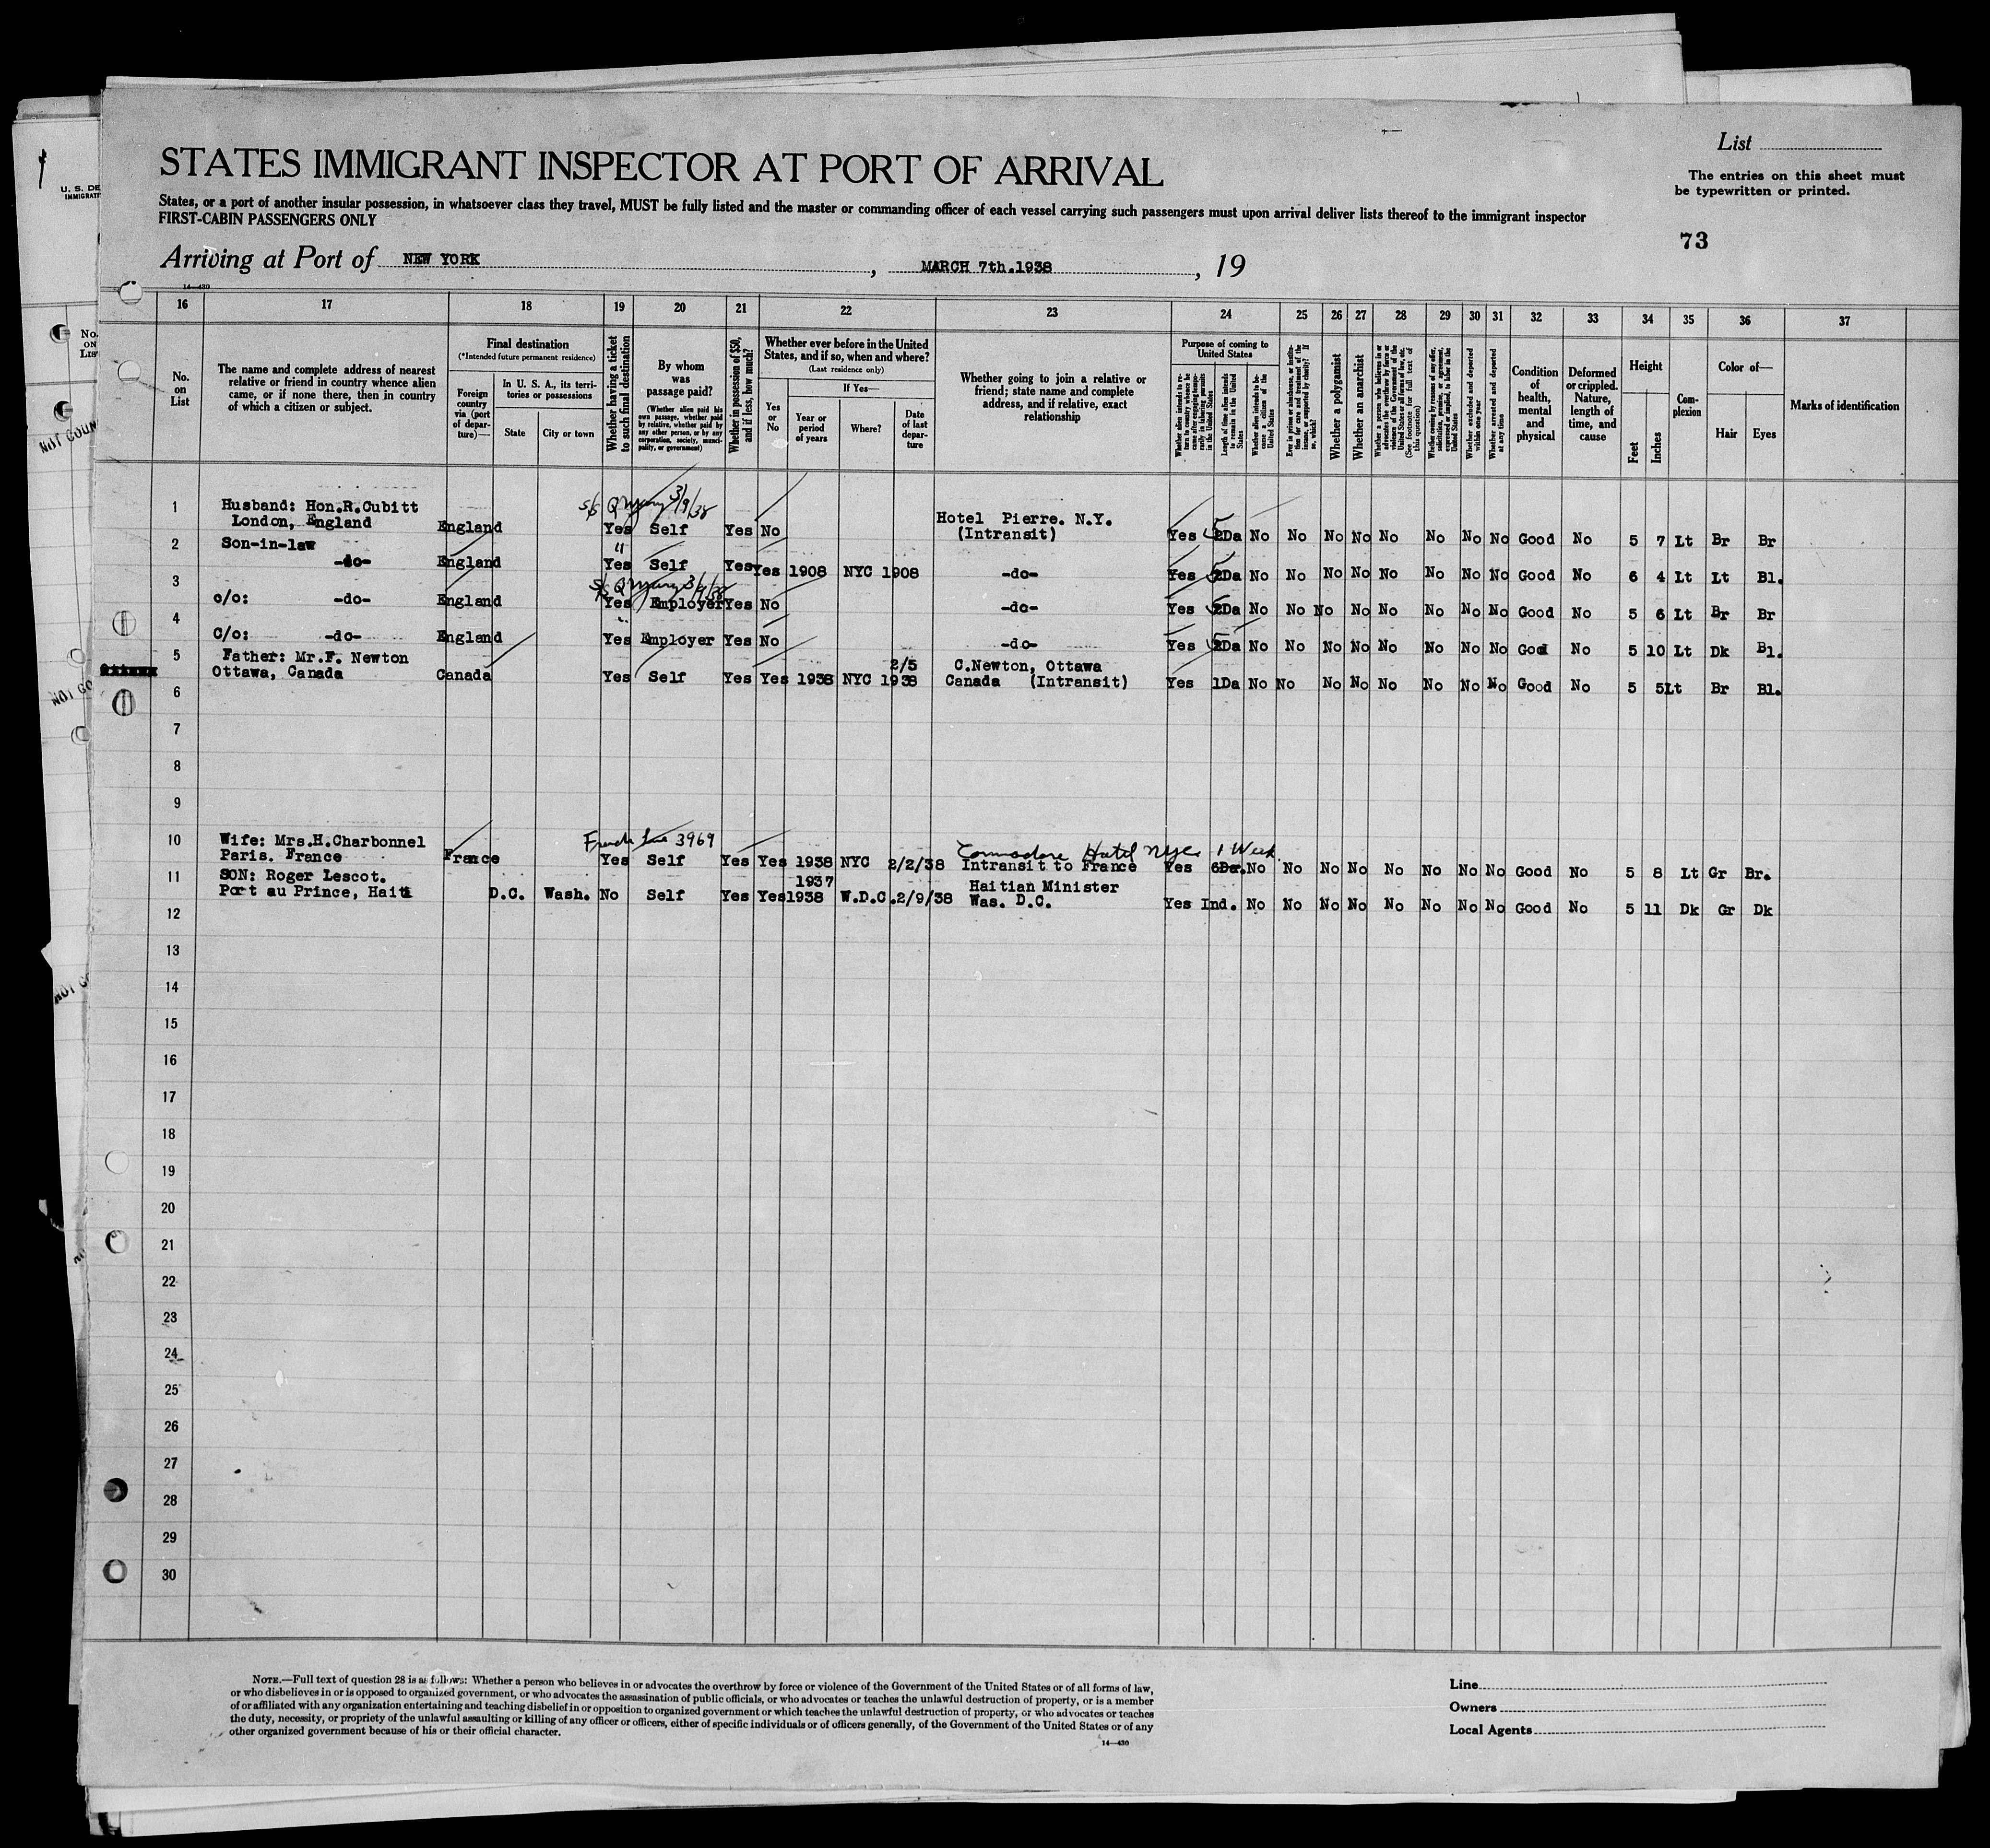 List
STATES IMMIGRANT INSPECTOR AT PORT OF ARRIVAL
The entries on this sheet must
be typewritten or printed.
States, or a port of another insular possession, in whatsoever class they travel, MUST be fully listed and the master or commanding officer of each vessel carrying such passengers must upon arrival deliver lists thereof to the immigrant inspector
FIRST-CABIN PASSENGERS ONLY
73
Arriving at Port of NEW YORK, MARCH 7th.1938, 19
14—430
U. S. DE
IMMIGRATI
No.
ON
LIS
NOT COUN
NOT GO
16 17 18 19 20 21 22 23 24 25 26 27 28 29 30 31 32 33 34 35 36 37
No. on List
The name and complete address of nearest relative or friend in country whence alien came, or if none there, then in country of which a citizen or subject.
Final destination
(*Intended future permanent residence)
Foreign country via (port of departure)—
In U. S. A., its territories or possessions
State
City or town
Whether having a ticket to such final destination
By whom was passage paid?
(Whether alien paid his own passage, whether paid by relative, whether paid by any other person, or by any corporation, society, municipality, or government)
Whether in possession of $50, and if less, how much?
Whether ever before in the United States, and if so, when and where?
(Last residence only)
Yes or No
If Yes—
Year or period of years
Where?
Date of last departure
Whether going to join a relative or friend; state name and complete address, and if relative, exact relationship
Purpose of coming to United States
Whether alien intends to return to country whence he came after engaging temporarily in laboring pursuits in the United States
Length of time alien intends to remain in the United States
Whether alien intends to become a citizen of the United States
Ever in prison or almshouse, or institution for care and treatment of the insane, or supported by charity? If so, which?
Whether a polygamist
Whether an anarchist
Whether a person who believes in or advocates the overthrow by force or violence of the Government of the United States or all forms of law, etc. (See footnote for full text of this question)
Whether coming by reason of any offer, solicitation, promise, or agreement, expressed or implied, to labor in the United States
Whether excluded and deported within one year
Whether arrested and deported at any time
Condition of health, mental and physical
Deformed or crippled. Nature, length of time, and cause
Height
Feet
Inches
Complexion
Color of—
Hair
Eyes
Marks of identification
S/S Q Mary 3/9/38
1 Husband: Hon.R.Cubitt
London, England England Yes Self Yes No Hotel Pierre. N.Y.
(Intransit) Yes 5 2Da No No No No No No No No Good No 5 7 Lt Br Br
2 Son-in-law "
-do- England Yes Self Yes Yes 1908 NYC 1908 -do- Yes 5 2Da No No No No No No No No Good No 6 4 Lt Lt Bl.
S/S Q Mary 3/9/38
3 c/o: -do- England Yes Employer Yes No -do- Yes 5 2Da No No No No No No No No Good No 5 6 Lt Br Br
4 "
C/o: -do- England Yes Employer Yes No -do- Yes 5 2Da No No No No No No No No Good No 5 10 Lt Dk Bl.
5 Father: Mr.F. Newton 2/5 C.Newton, Ottawa
Ottawa, Canada Canada Yes Self Yes Yes 1938 NYC 1938 Canada (Intransit) Yes 1Da No No No No No No No No Good No 5 5 Lt Br Bl.
6
7
8
9
French Line 3969 Commodore Hotel NYC 1 Week
10 Wife: Mrs.H.Charbonnel
Paris. France France Yes Self Yes Yes 1938 NYC 2/2/38 Intransit to France Yes 6Da. No No No No No No No No Good No 5 8 Lt Gr Br.
11 SON: Roger Lescot. 1937 Haitian Minister
Port au Prince, Haiti D.C. Wash. No Self Yes Yes 1938 W.D.C. 2/9/38 Was. D.C. Yes Ind. No No No No No No No No Good No 5 11 Dk Gr Dk
12
13
14
15
16
17
18
19
20
21
22
23
24
25
26
27
28
29
30
NOTE.—Full text of question 28 is as follows: Whether a person who believes in or advocates the overthrow by force or violence of the Government of the United States or of all forms of law,
or who disbelieves in or is opposed to organized government, or who advocates the assassination of public officials, or who advocates or teaches the unlawful destruction of property, or is a member
of or affiliated with any organization entertaining and teaching disbelief in or opposition to organized government or which teaches the unlawful destruction of property, or who advocates or teaches
the duty, necessity, or propriety of the unlawful assaulting or killing of any officer or officers, either of specific individuals or of officers generally, of the Government of the United States or of any
other organized government because of his or their official character.
14—430
Line
Owners
Local Agents